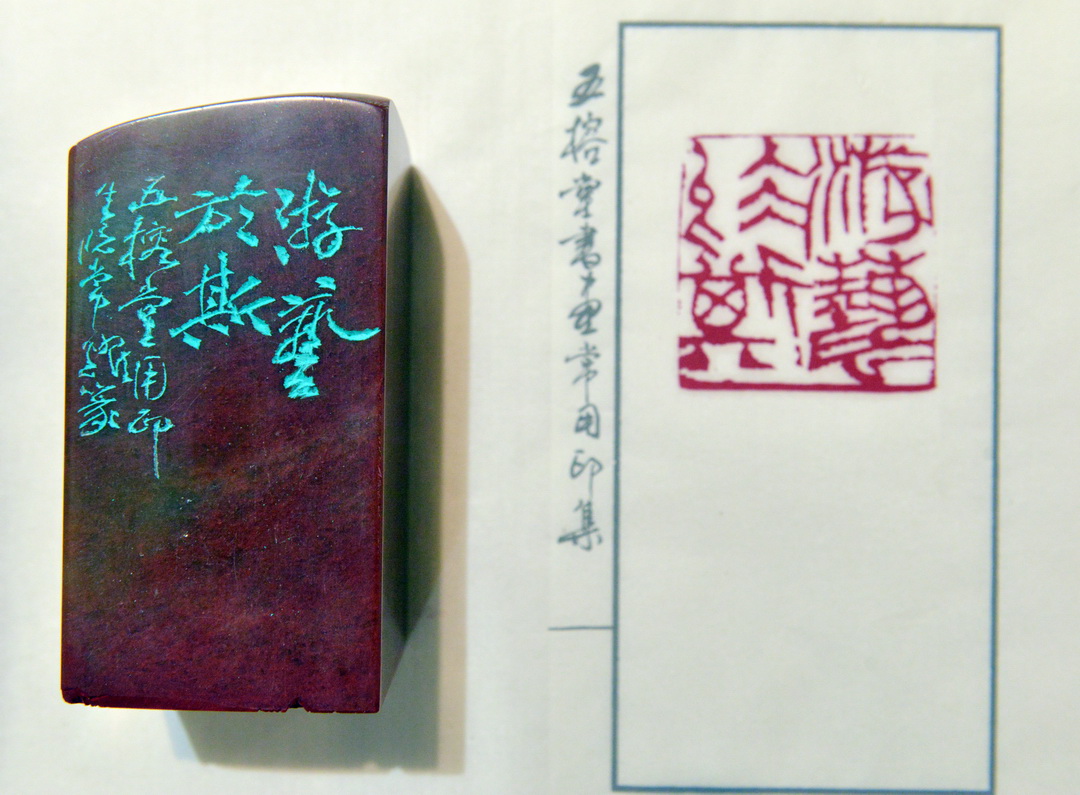 游藝
於斯
五榕堂用印
生常篆
五榕堂書畫常用印集
游藝
於斯